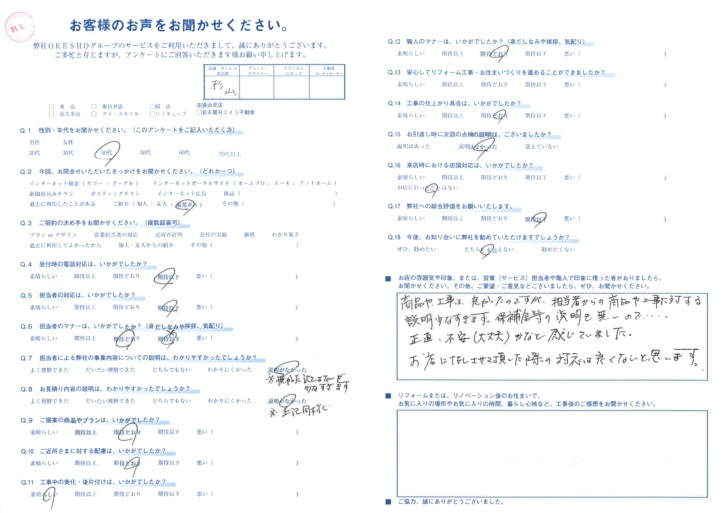 お客様のお声をお聞かせください。
弊社OKESHOグループのサービスをご利用いただきまして、誠にありがとうございます。
ご多忙と存じますが、アンケートにご回答いただきます様お願い申し上げます。
営業・サービス 担当者
プランナー デザイナー
テクニカル スタッフ
不動産 コーディネーター
杉山
□東店 □春日井店 □緑店
□長久手店 □アイ・スタイル □リノキューブ □名古屋Rエイジ不動産
Q.1 性別・年代をお聞かせください。（このアンケートをご記入いただく方）
男性 女性
20代 30代 40代 50代 60代 70代以上
Q.2 今回、お問合せいただいたきっかけをお聞かせください。（どれか一つ）
インターネット検索（ヤフー・グーグル） インターネットポータルサイト（ホームプロ、スーモ、アットホーム）
新聞折込みチラシ ポスティングチラシ インターネット広告 雑誌（ ）
過去に利用したことがある ご紹介（加入・友人・ ） その他（ ）
Q.3 ご契約の決め手をお聞かせください。（複数回答可）
プラン or デザイン 営業担当者の対応 近所の評判 会社の実績 価格 わかり易さ
過去に利用してよかったから 加入・友人からの紹介 その他（ ）
Q.4 受付時の電話対応は、いかがでしたか？
素晴らしい 期待以上 期待どおり 期待以下 悪い（ ）
Q.5 担当者の対応は、いかがでしたか？
素晴らしい 期待以上 期待どおり 期待以下 悪い（ ）
Q.6 担当者のマナーは、いかがでしたか？（身だしなみや挨拶、気配り）
素晴らしい 期待以上 期待どおり 期待以下 悪い（ ）
Q.7 担当者による弊社の事業内容についての説明は、わかりやすかったでしょうか？
よく理解できた だいたい理解できた どちらでもない わかりにくかった 説明がなかった
Q.8 お見積り内容の説明は、わかりやすかったでしょうか？
よく理解できた だいたい理解できた どちらでもない わかりにくかった 説明がなかった
※上記同様に
Q.9 ご提案の商品やプランは、いかがでしたか？
素晴らしい 期待以上 期待どおり 期待以下 悪い（ ）
Q.10 ご近所さまに対する配慮は、いかがでしたか？
素晴らしい 期待以上 期待どおり 期待以下 悪い（ ）
Q.11 工事中の美化・後片付けは、いかがでしたか？
素晴らしい 期待以上 期待どおり 期待以下 悪い（ ）
Q.12 職人のマナーは、いかがでしたか？（身だしなみや挨拶、気配り）
素晴らしい 期待以上 期待どおり 期待以下 悪い（ ）
Q.13 安心してリフォーム工事・お住まいづくりを進めることができましたか？
素晴らしい 期待以上 期待どおり 期待以下 悪い（ ）
Q.14 工事の仕上がり具合は、いかがでしたか？
素晴らしい 期待以上 期待どおり 期待以下 悪い（ ）
Q.15 お引渡し時に次回の点検の説明は、ございましたか？
説明はあった 説明はなかった 覚えていない
Q.16 来店時における店頭対応は、いかがでしたか？
素晴らしい 期待以上 期待どおり 期待以下 悪い（ ）
お店に行ったことはない
Q.17 弊社への総合評価をお願いします。
素晴らしい 期待以上 期待どおり 期待以下 悪い（ ）
Q.18 今後、お知り合いに弊社を勧めていただけますでしょうか？
ぜひ、勧めたい どちらとも言えない 勧めたくない
■ お店の雰囲気や印象、または、営業（サービス）担当者や職人で印象に残った者がおりましたら、
お聞かせください。その他、ご要望・ご意見などございましたら、ぜひ、お聞かせください。
商品や工事は、良かったのですが、担当者からの商品や工事に対する
説明少なすぎます。保補金等の説明も無いので・・・・
正直、不安（大丈夫）かなと感じていました。
お店にTELさせて頂いた際の対応は良くないと思います。
■ リフォームまたは、リノベーション後のお住まいで、
お気に入りの場所やお気に入りの時間、暮らし心地など、工事後のご感想をお聞かせください。
■ ご協力、誠にありがとうございました。